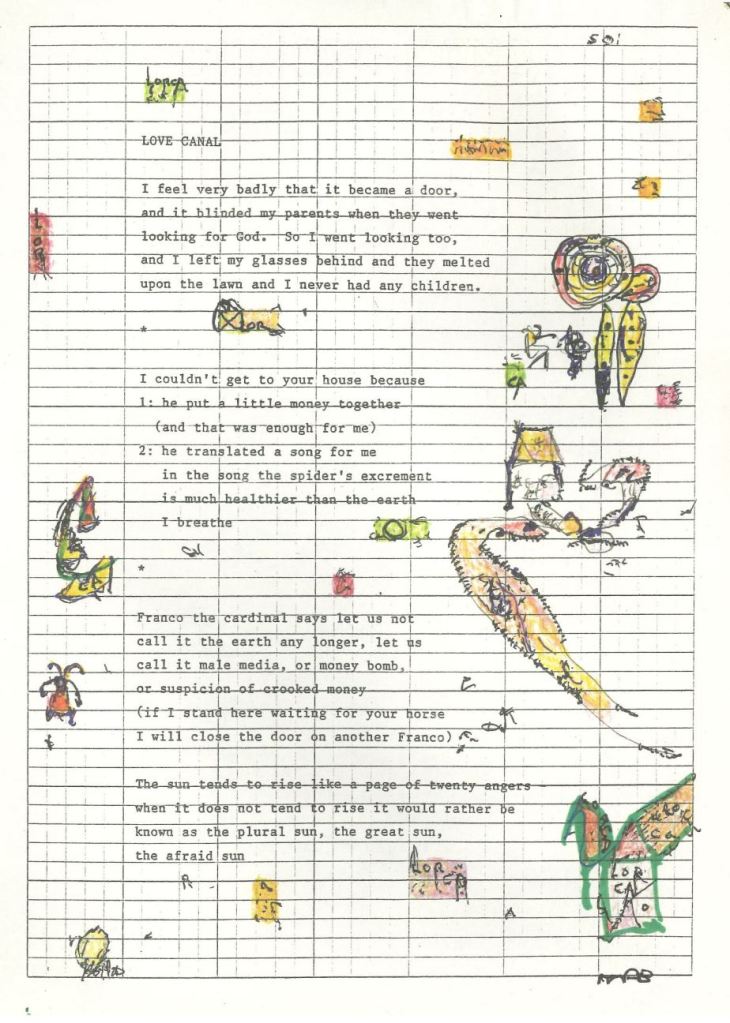 LORCA
LOVE CANAL
I feel very badly that it became a door,
and it blinded my parents when they went
looking for God.  So I went looking too,
and I left my glasses behind and they melted
upon the lawn and I never had any children.
LOR
*
CA
I couldn't get to your house because
1: he put a little money together
(and that was enough for me)
2: he translated a song for me
in the song the spider's excrement
is much healthier than the earth
I breathe
*
CA
Franco the cardinal says let us not
call it the earth any longer, let us
call it male media, or money bomb,
or suspicion of crooked money
(if I stand here waiting for your horse
I will close the door on another Franco)
The sun tends to rise like a page of twenty angers -
when it does not tend to rise it would rather be
known as the plural sun, the great sun,
the afraid sun
LOR
LOR
CA
R
A